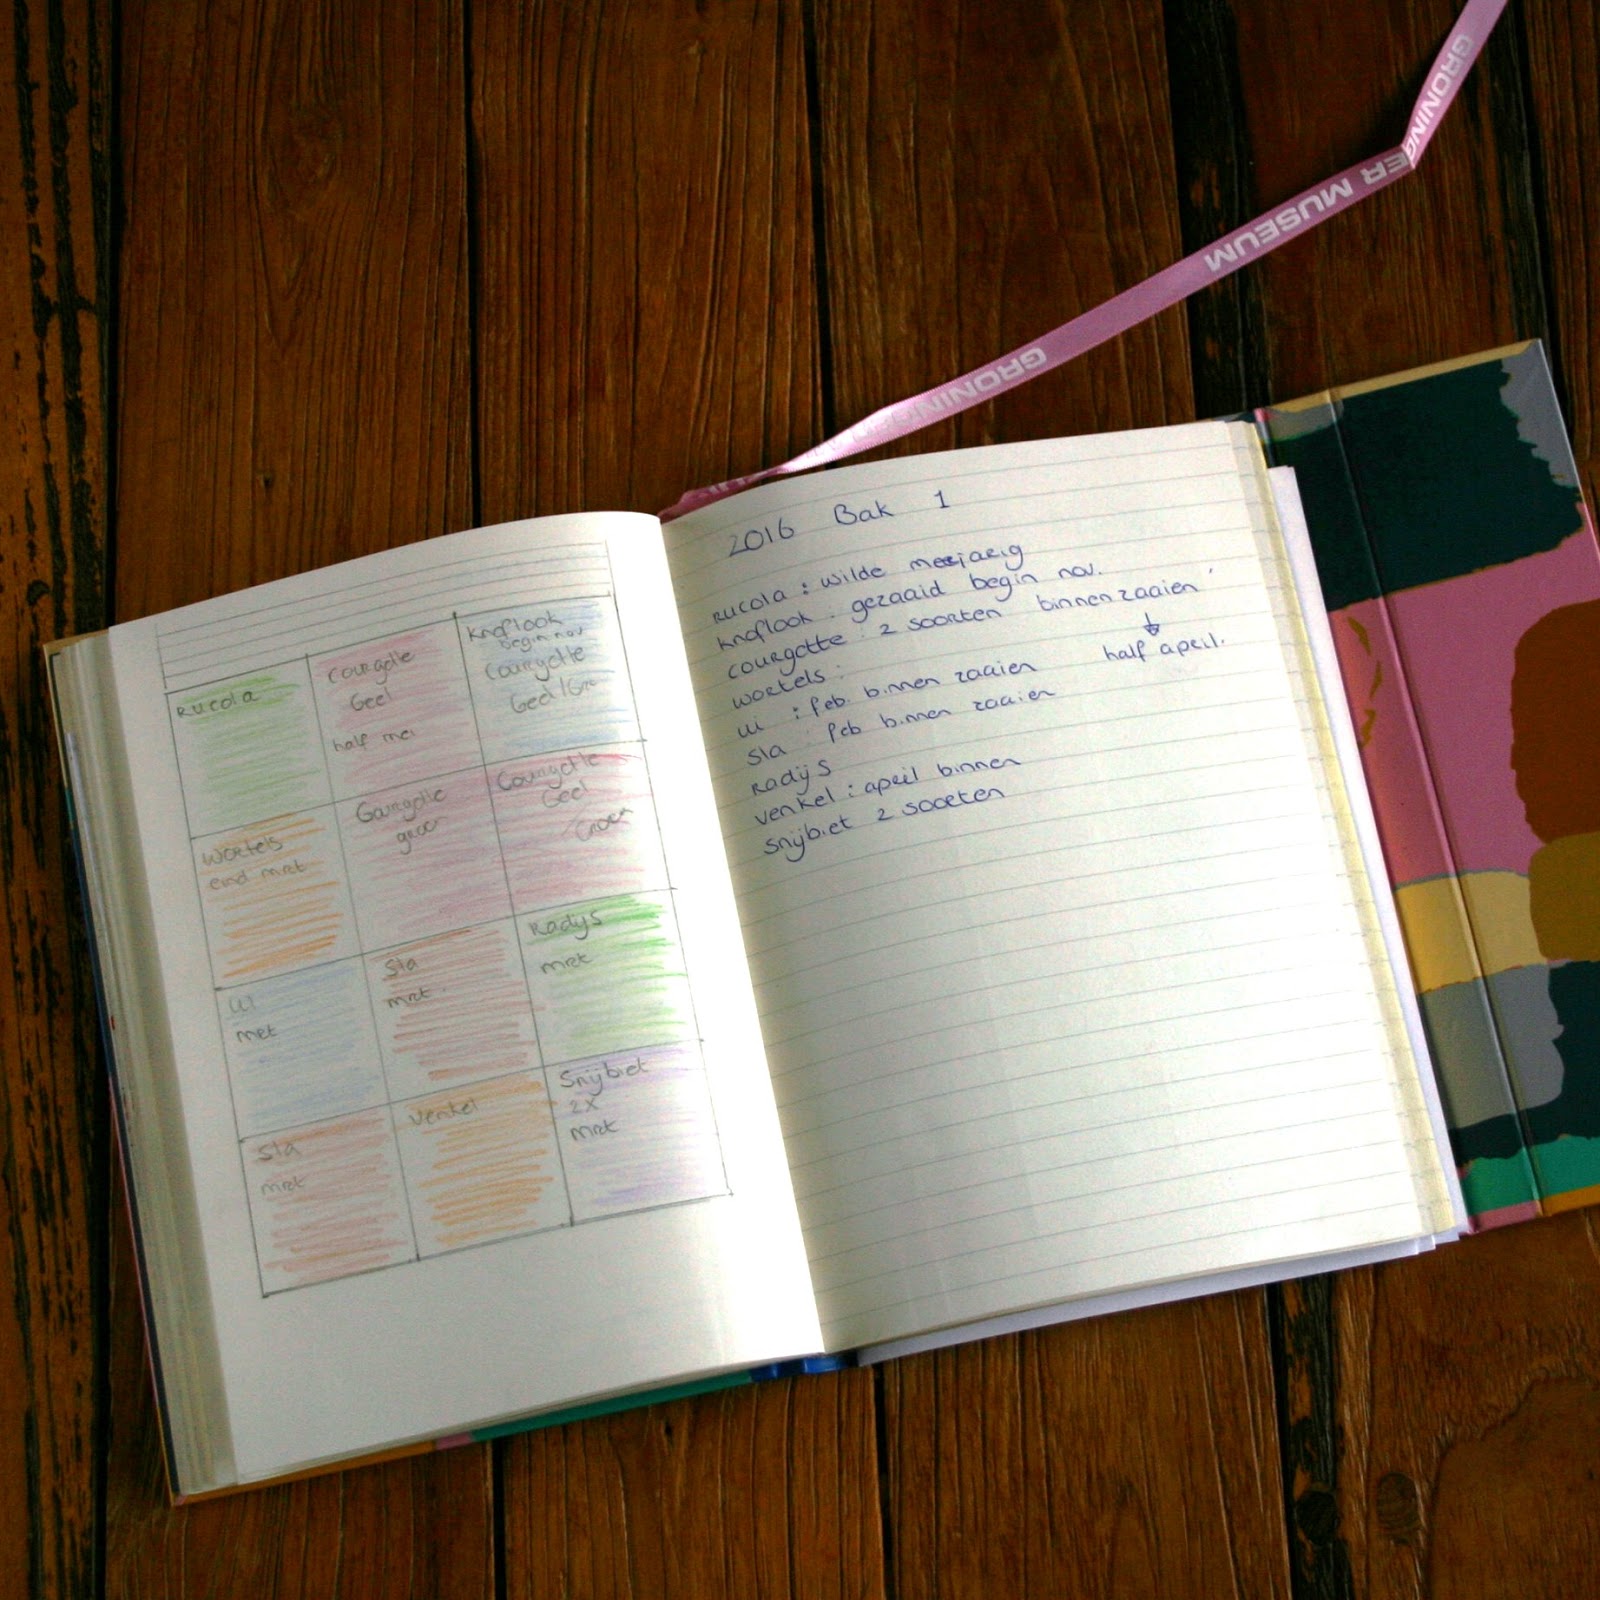 GRONINGER MUSEUM
GRONINGER
Rucola
Courgette
Geel
half mei
Knoflook
begin nov
Courgette
Geel/Gro
Wortels
eind mrt
Courgette
groen
Courgette
Geel
/Groen
Ui
mrt
Sla
mrt.
Radijs
mrt
Sla
mrt
Venkel
Snijbiet
2x
mrt
2016 Bak 1
Rucola : wilde meerjarig
Knoflook : gezaaid begin nov.
Courgette : 2 soorten binnen zaaien
half april.
Wortels :
Ui : feb. binnen zaaien
Sla : feb binnen zaaien
Radijs
Venkel : april binnen
Snijbiet 2 soorten